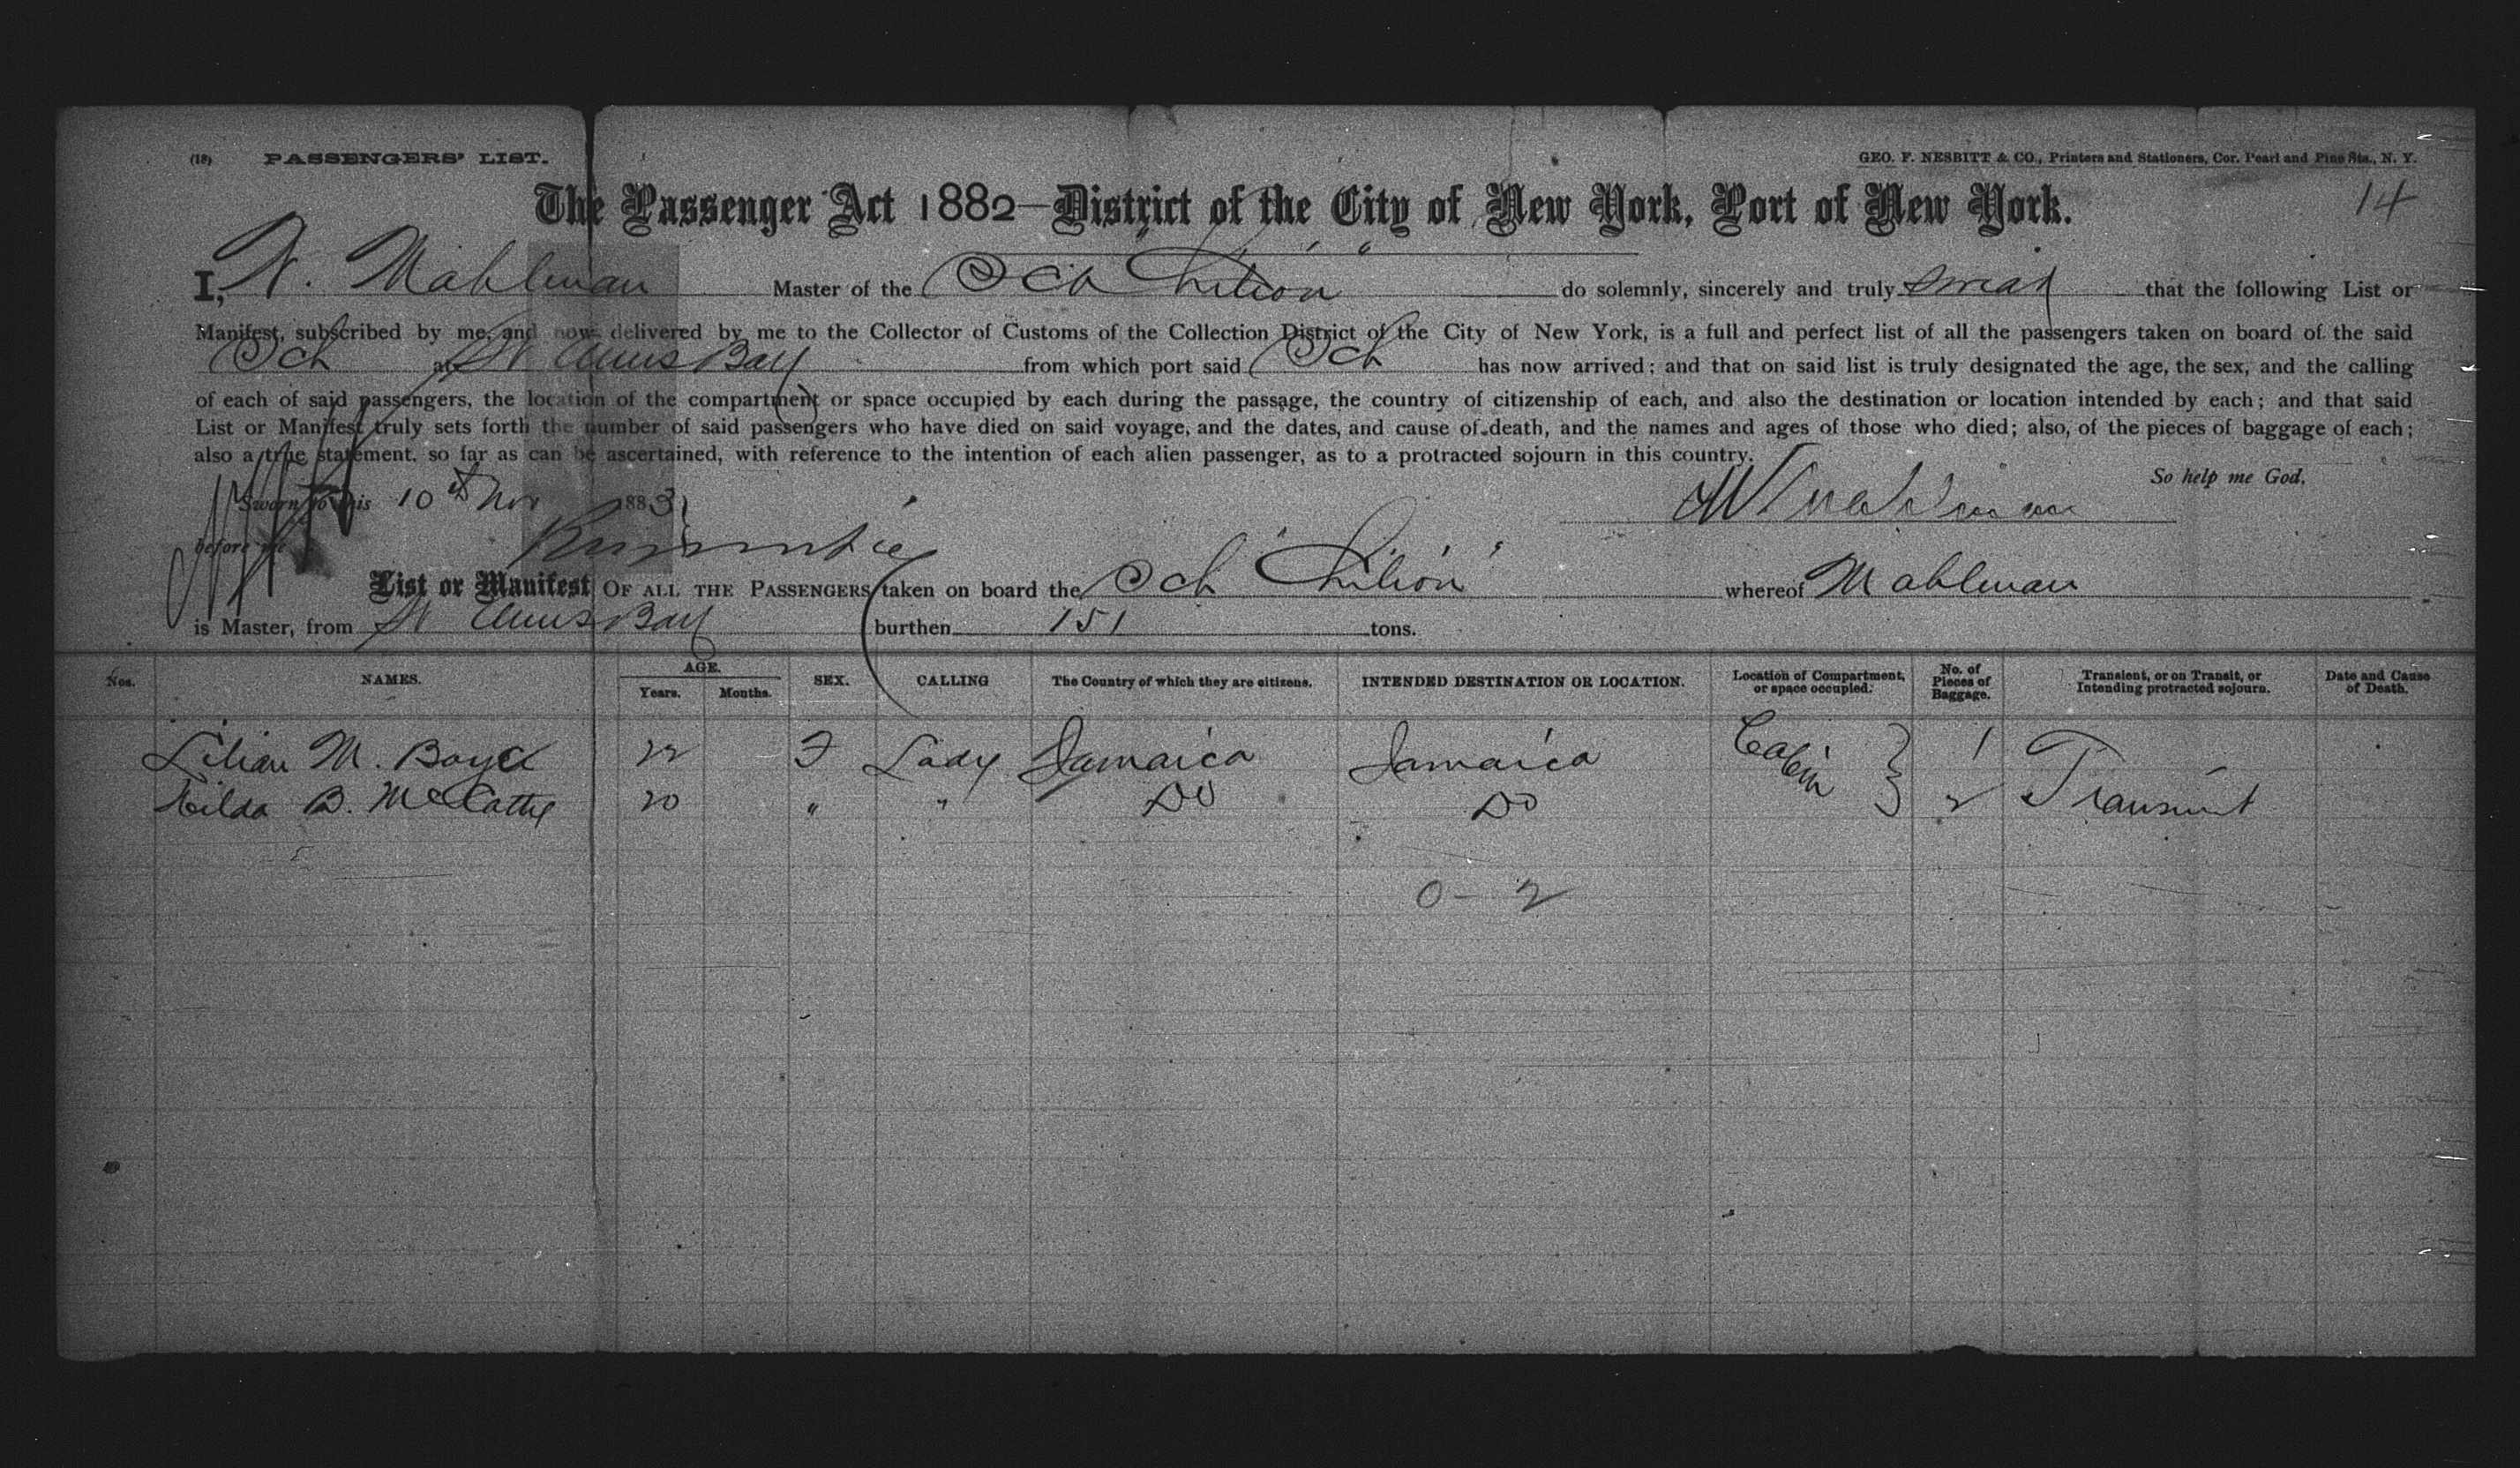 (18) PASSENGERS' LIST.
GEO. F. NESBITT & CO., Printers and Stationers, Cor. Pearl and Pine Sts., N. Y.
14
The Passenger Act 1882—District of the City of New York, Port of New York.
I, W. Mahlman Master of the Sch "Lilion" do solemnly, sincerely and truly swear that the following List or
Manifest, subscribed by me, and now delivered by me to the Collector of Customs of the Collection District of the City of New York, is a full and perfect list of all the passengers taken on board of the said
Sch at St Anns Bay from which port said Sch has now arrived; and that on said list is truly designated the age, the sex, and the calling
of each of said passengers, the location of the compartment or space occupied by each during the passage, the country of citizenship of each, and also the destination or location intended by each; and that said
List or Manifest truly sets forth the number of said passengers who have died on said voyage, and the dates, and cause of death, and the names and ages of those who died; also, of the pieces of baggage of each;
also a true statement, so far as can be ascertained, with reference to the intention of each alien passenger, as to a protracted sojourn in this country.
So help me God.
Sworn to this 10th Nov 1883
W Mahlman
before me
List or Manifest OF ALL THE PASSENGERS taken on board the Sch "Lilion" whereof Mahlman
is Master, from St Anns Bay burthen 151 tons.
Nos. NAMES. AGE. Years. Months. SEX. CALLING The Country of which they are citizens. INTENDED DESTINATION OR LOCATION. Location of Compartment, or space occupied. No. of Pieces of Baggage. Transient, or on Transit, or Intending protracted sojourn. Date and Cause of Death.
Lilian M. Boyd 22 F Lady Jamaica Jamaica Cabin 1 Transient
Hilda B. McCathy 20 " " Do Do 2
0 - 2